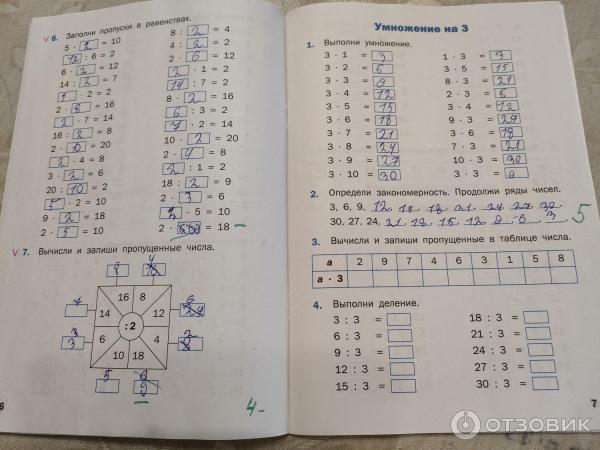 √ 6. Заполни пропуски в равенствах.
5 · 2 = 10
12 : 6 = 2
6 · 2 = 12
14 : 2 = 7
1 · 2 = 2
2 · 8 = 16
2 · 7 = 14
16 : 2 = 8
2 · 10 = 20
2 · 4 = 8
3 · 2 = 6
20 : 10 = 2
5 · 2 = 10
9 · 2 = 18
2 · 5 = 10
8 : 2 = 4
4 : 2 = 2
2 · 6 = 12
2 · 1 = 2
14 : 7 = 2
8 · 2 = 16
6 : 3 = 2
7 · 2 = 14
10 · 2 = 20
2 · 4 = 8
2 : 1 = 2
18 : 2 = 9
2 · 3 = 6
2 · 5 = 10
2 · = 18 –
√ 7. Вычисли и запиши пропущенные числа.
8 4
7 16 8 6
14 12
: 2
3 6 4 2
3 10 18 8
5 9
4–
6
Умножение на 3
1. Выполни умножение.
3 · 1 = 3
3 · 2 = 6
3 · 3 = 9
3 · 4 = 12
3 · 5 = 15
3 · 6 = 18
3 · 7 = 21
3 · 8 = 24
3 · 9 = 27
3 · 10 = 30
1 · 3 = 3
3 · 5 = 15
8 · 3 = 21
2 · 3 = 6
3 · 4 = 12
9 · 3 = 27
3 · 6 = 18
7 · 3 = 21
10 · 3 = 30
3 · 3 = 9
2. Определи закономерность. Продолжи ряды чисел.
3, 6, 9, 12 15 18 21 24 27 30
30, 27, 24, 21 18 15 12 9 6 3
5
3. Вычисли и запиши пропущенные в таблице числа.
а 2 9 7 4 6 3 1 5 8
а · 3
4. Выполни деление.
3 : 3 =
6 : 3 =
9 : 3 =
12 : 3 =
15 : 3 =
18 : 3 =
21 : 3 =
24 : 3 =
27 : 3 =
30 : 3 =
7
ОТЗОВИК